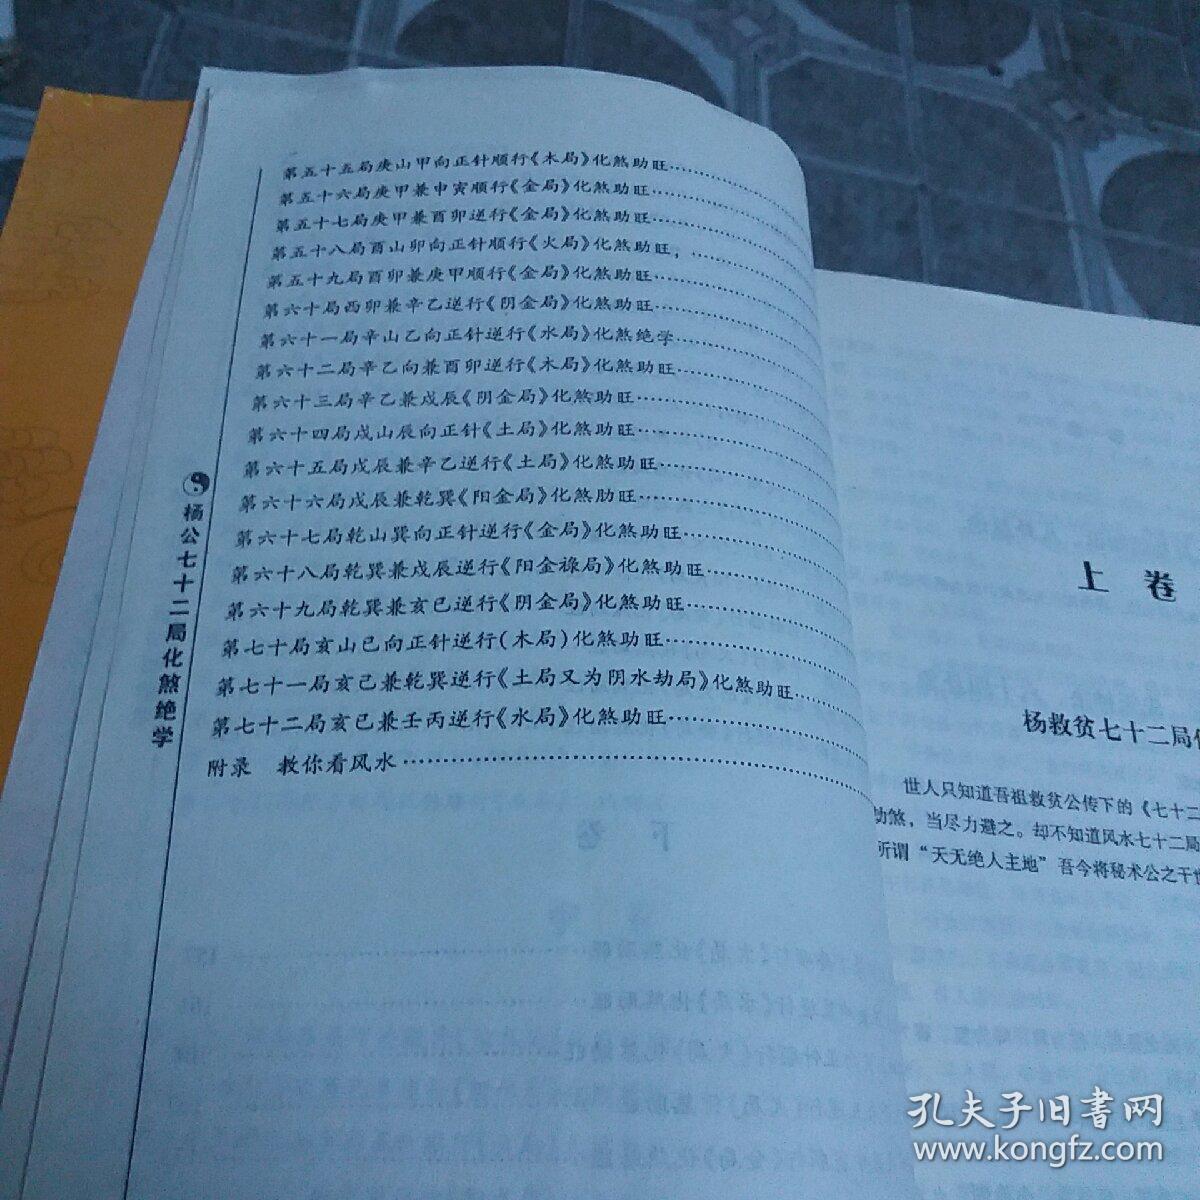 第五十五局庚山甲向正针顺行《木局》化煞助旺
第五十六局庚甲兼申寅顺行《金局》化煞助旺
第五十七局庚甲兼酉卯逆行《金局》化煞助旺
第五十八局酉山卯向正针顺行《火局》化煞助旺,
第五十九局酉卯兼庚甲顺行《金局》化煞助旺
第六十局西卯兼辛乙逆行《阴金局》化煞助旺
第六十一局辛山乙向正针逆行《水局》化煞绝学
第六十二局辛乙向兼酉卯逆行《木局》化煞助旺
第六十三局辛乙兼戍辰《阴金局》化煞助旺
第六十四局戍山辰向正针《土局》化煞助旺
第六十五局戊辰兼辛乙逆行《土局》化煞助旺
第六十六局戊辰兼乾巽《阳金局》化煞肋旺
第六十七局乾山巽向正针逆行《金局》化煞助旺
第六十八局乾巽兼戍辰逆行《阳金禄局》化煞助旺
第六十九局乾巽兼亥巳逆行《阴金局》化煞助旺
第七十局亥山巳向正针逆行(木局)化煞助旺
第七十一局亥己兼乾巽逆行《土局又为阴水劫局》化煞助旺
第七十二局亥巳兼壬丙逆行《水局》化煞助旺
附录 教你看风水
杨公七十二局化煞绝学
上卷
杨救贫七十二局
世人只知道吾祖救贫公传下的《七十二
劫煞，当尽力避之。却不知道风水七十二局
所谓“天无绝人主地”吾今将秘术公之于
孔夫子旧书网
www.kongfz.com